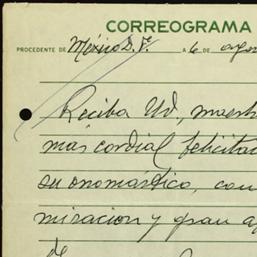 CORREOGRAMA
PROCEDENTE DE México D.F. A 6 DE ago
Reciba Ud, maest
más cordial felicita
su onomástico, con
miración y gran a
de